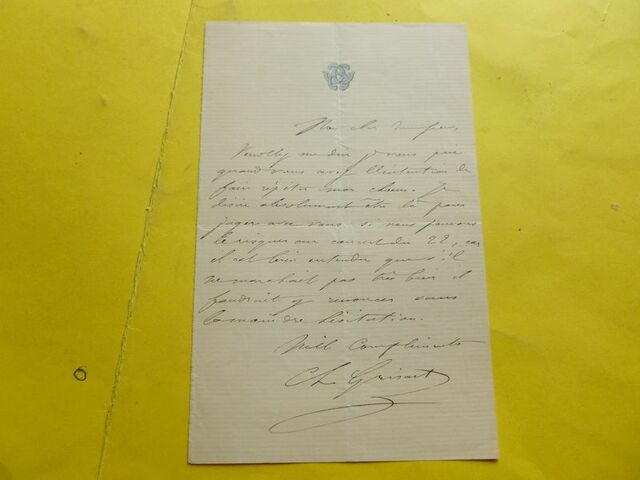 Mon cher
Veuillez me dire je vous prie
quand vous avez l'intention de
faire répéter mon chœur. Je
désire absolument être là pour
juger avec vous si nous pouvons
le risquer au concert du 22, car
il est bien entendu que s'il
ne marchait pas très bien il
faudrait y renoncer sans
la moindre hésitation.
Mille Compliments
Ch. Grisart